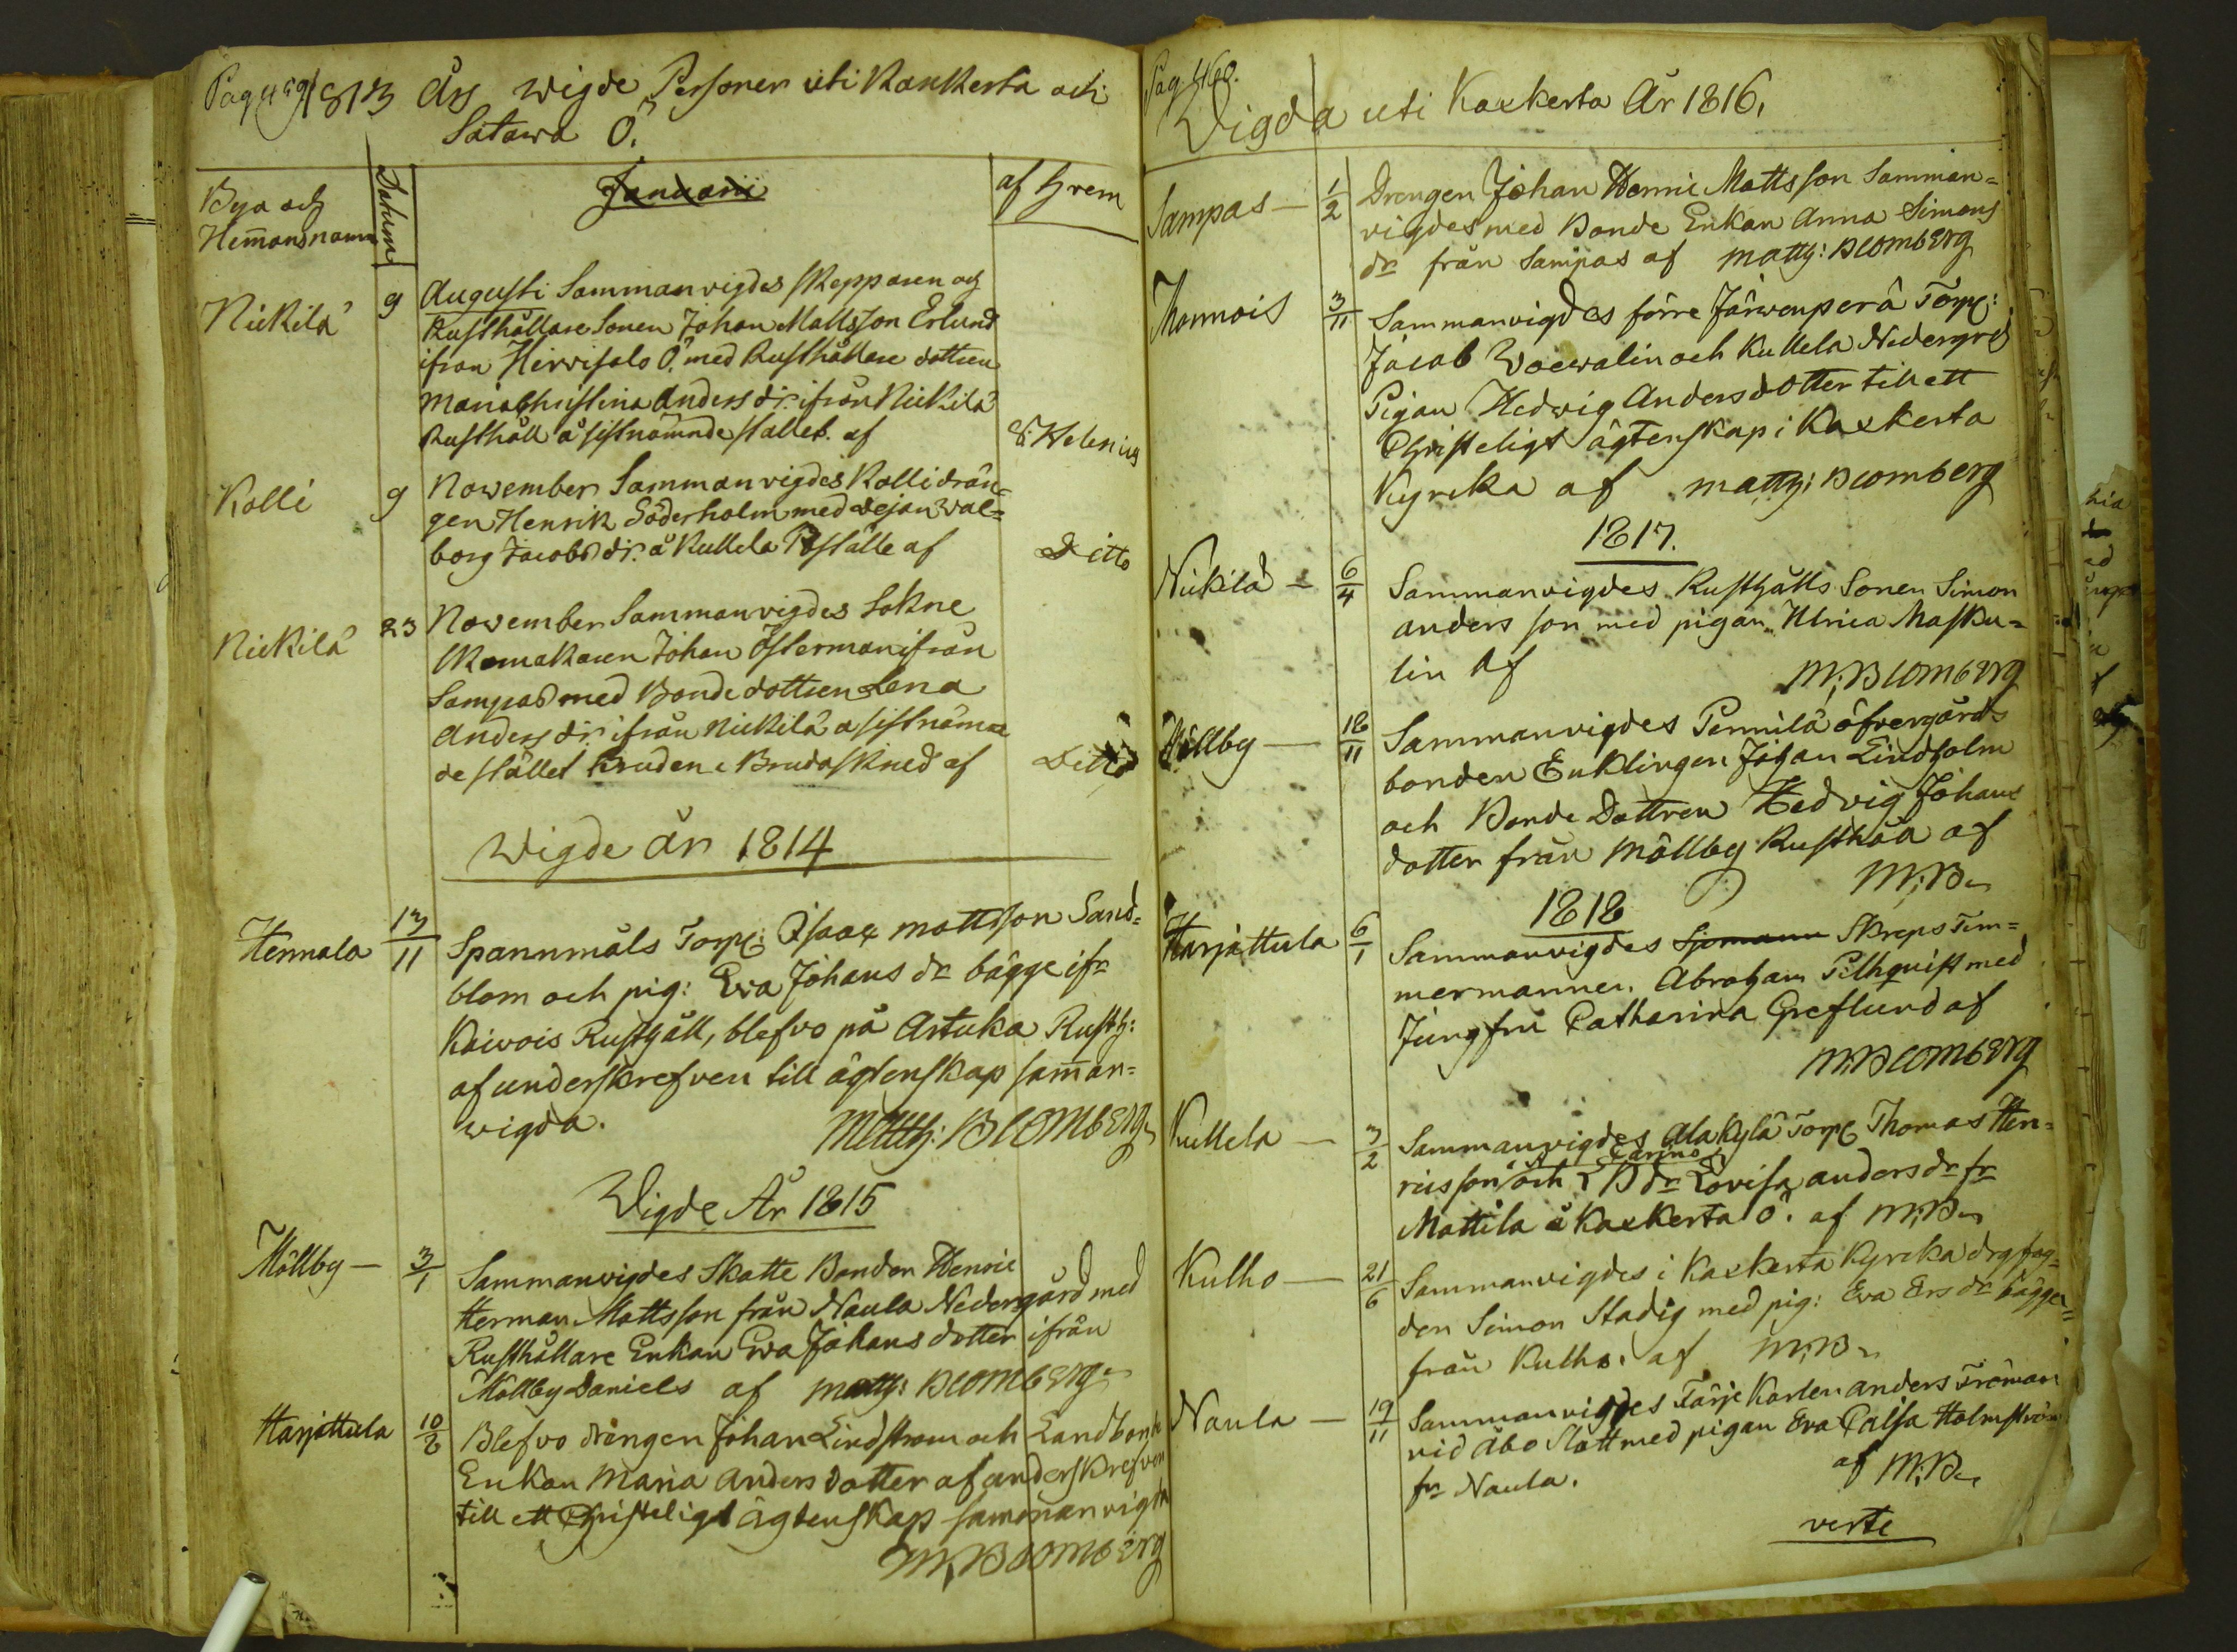 Pag 459 1813 Års Wigde Personer uti Kankerta och
Satawa Ö.
Bya och
Hem̄ansnamn
Datum
Januarii
af Hvem
Nickilä
9
Augusti Sammanvigdes Skepparen och
Rusthållare Sonen Johan Mattsson Erlund
ifrån Hirvisalo Ö. med Rusthållare dottren
Maria Christina Anders dr. ifrån Nickilä
Rusthåll å sistnämnde stället. af
Helenius
Kolli
9
November Sammanvigdes Kolli drän=
gen Henrik Söderholm med Dejan Wal=
borg Jacobs dr. å Kullela Bställe af
Ditto
Nickilä
23
November Sammanvigdes Sokne
Skomakaren Johan Österman ifrån
Sampas med Bonde dottren Lena
Anders dr. ifrån Nickilä å sistnämn
de stället Bruden i Brudaskrud af
Ditto
Wigde år 1814
Hennala
13/11
Spannmåls Torp: Isaac Mattsson Sand=
blom och pig: Eva Johans dr bägge ifr
Kaivois Rusthåll, blefvo på Artuka Rusth:
af underskrefven till ägtenskap sam̄an=
wigda.
Matth: Blomberg
Wigde År 1815
Möllby —
3/1
Sammanvigdes Skatte Bonden Henric
Herman Mattsson från Naula Nedergård med
Rusthållare Enkan Eva Johans dotter ifrån
Möllby Daniels af Matth: Blomberg
Harjattula
10/6
Blefvo drängen Johan Lindstrom och Landbonde
Enkan Maria Anders dotter af underskrefven
till ett Christeligt ägtenskap sammanvigda
M. Blomberg
Pag. 460.
Vigda uti Kaxkerta År 1816.
Sampas —
1/2
Drengen Johan Henric Mattsson Samman=
vigdes med Bonde Enkan Anna Simons
dr från Sampas af Matth: Blomberg
Monnois
3/11
Sammanvigdes förre Järvenperä Torp:
Jacob Woewalin och Kullela Nedergrd
Pigan Hedwig Andersdotter till ett
Christeligt ägtenskap i Kaxkerta
Kyrcka af Matth: Blomberg
1817.
Nickilä —
6/4
Sammanvigdes Rusthålls Sonen Simon
Anders son med pigan Ulrica Masku=
lin af
M; Blomberg
Möllby —
18/11
Sammanvigdes Pennilä öfvergårds
bonden Enklingen Johan Lindholm
och Bonde Dottren Hedvig Johans
dotter från Möllby Rusthåll af
M; B
1818
Harjattula
6/1
Sammanvigdes Sjömann Skeps Tim=
mermannen. Abraham Pilhqvist med
Jungfru Catharina Greflund af
M: Blomberg
Kullela —
3/2
Sammanvigdes Alakylä Torp Thomas Hen=
Carins
ricsson och B dr Lovisa anders dr fr
Mattila å Kaxkerta Ö. af M; B
Kulho —
21/6
Sammanvigdes i Kaxkerta Kyrcka drg fag=
den Simon Stadig med pig: Eva Ers dr bägge
från Kulho. af M; B
Naula —
19/11
Sammanvigdes Färje Karlen anders Fröman
vid Åbo Slott med pigan Eva Caisa Holmström
fr Naula.
af M; B
verte